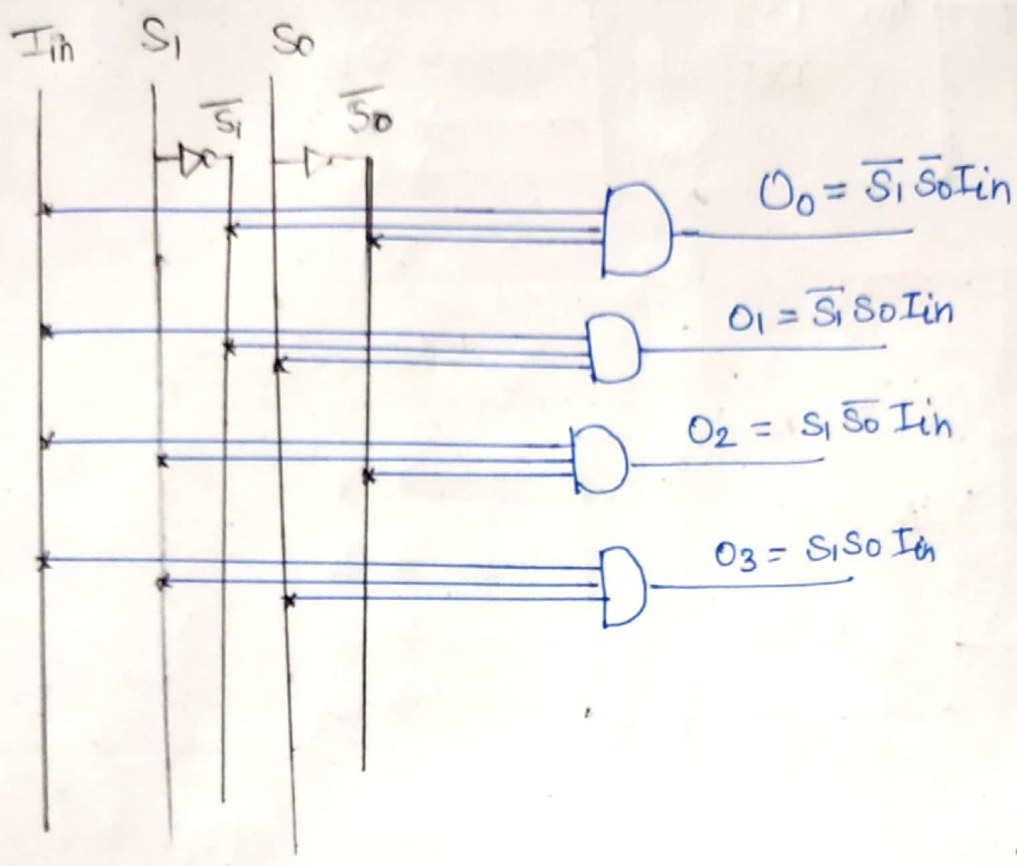 Iin S1 S0
S̅1 S̅0
O0 = S̅1 S̅0 Iin
O1 = S̅1 S0 Iin
O2 = S1 S̅0 Iin
O3 = S1 S0 Iin